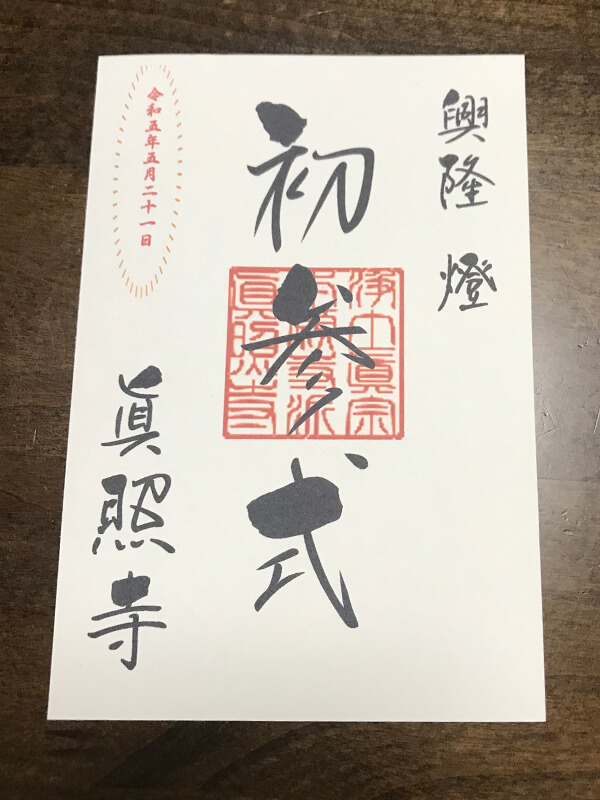 興隆燈
初参式
浄土真宗
本願寺派
眞照寺
眞照寺
令和五年五月二十一日